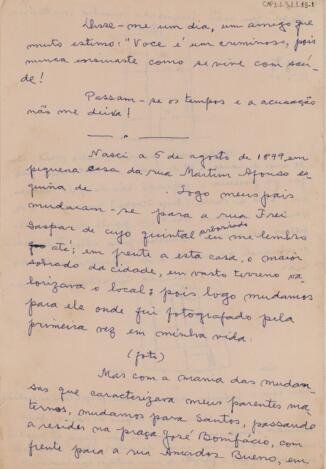 Disse-me um dia, um amigo que
muto estimo: "Você é um criminoso, pois
nunca ensinaste como se vive com saú-
de!
Passam-se os tempos e a acusação
não me deixa!
Nasci a 5 de agosto de 1899, em
pequena casa da rua Martim Afonso es
quina de . Logo meus pais
mudaram-se para a rua Frei
Gaspar de cujo quintal arborisado eu me lembro
até; em frente a esta casa, o maior
sobrado da cidade, em vasto terreno va
lorizava o local; pois logo mudamos
para ele onde fui fotografado pela
primeira vez em minha vida.
(foto)
Mas com a mania das mudan-
sas que caracterizava meus parentes ma-
ternos, mudamos para Santos, passando
a residir na praça José Bonifácio, com
frente para a rua Amador Bueno, em